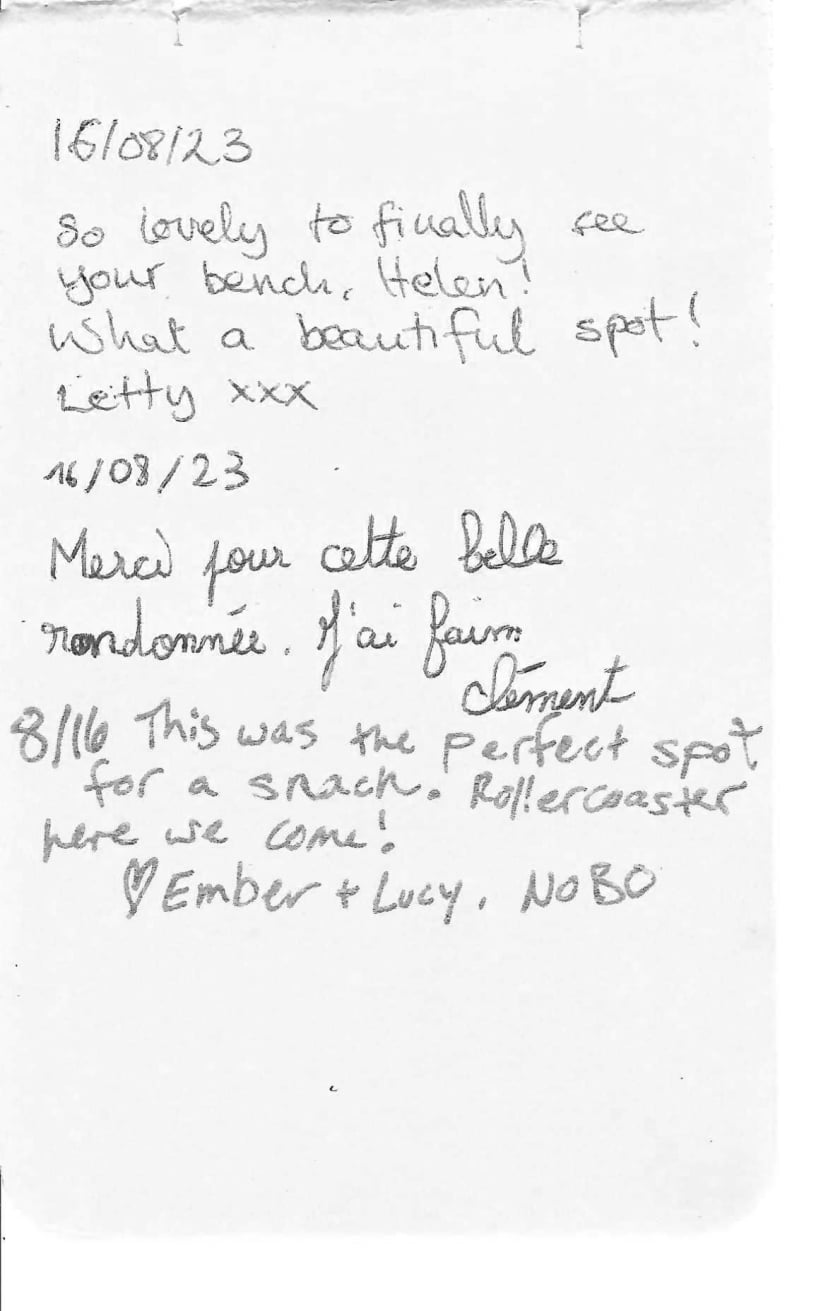 16/08/23
So lovely to finally see
your bench, Helen!
What a beautiful spot!
Letty xxx
16/08/23
Merci pour cette belle
randonnée. J'ai faim
Clément
8/16 This was the perfect spot
for a snack. Rollercoaster
here we come!
♡ Ember + Lucy, NOBO